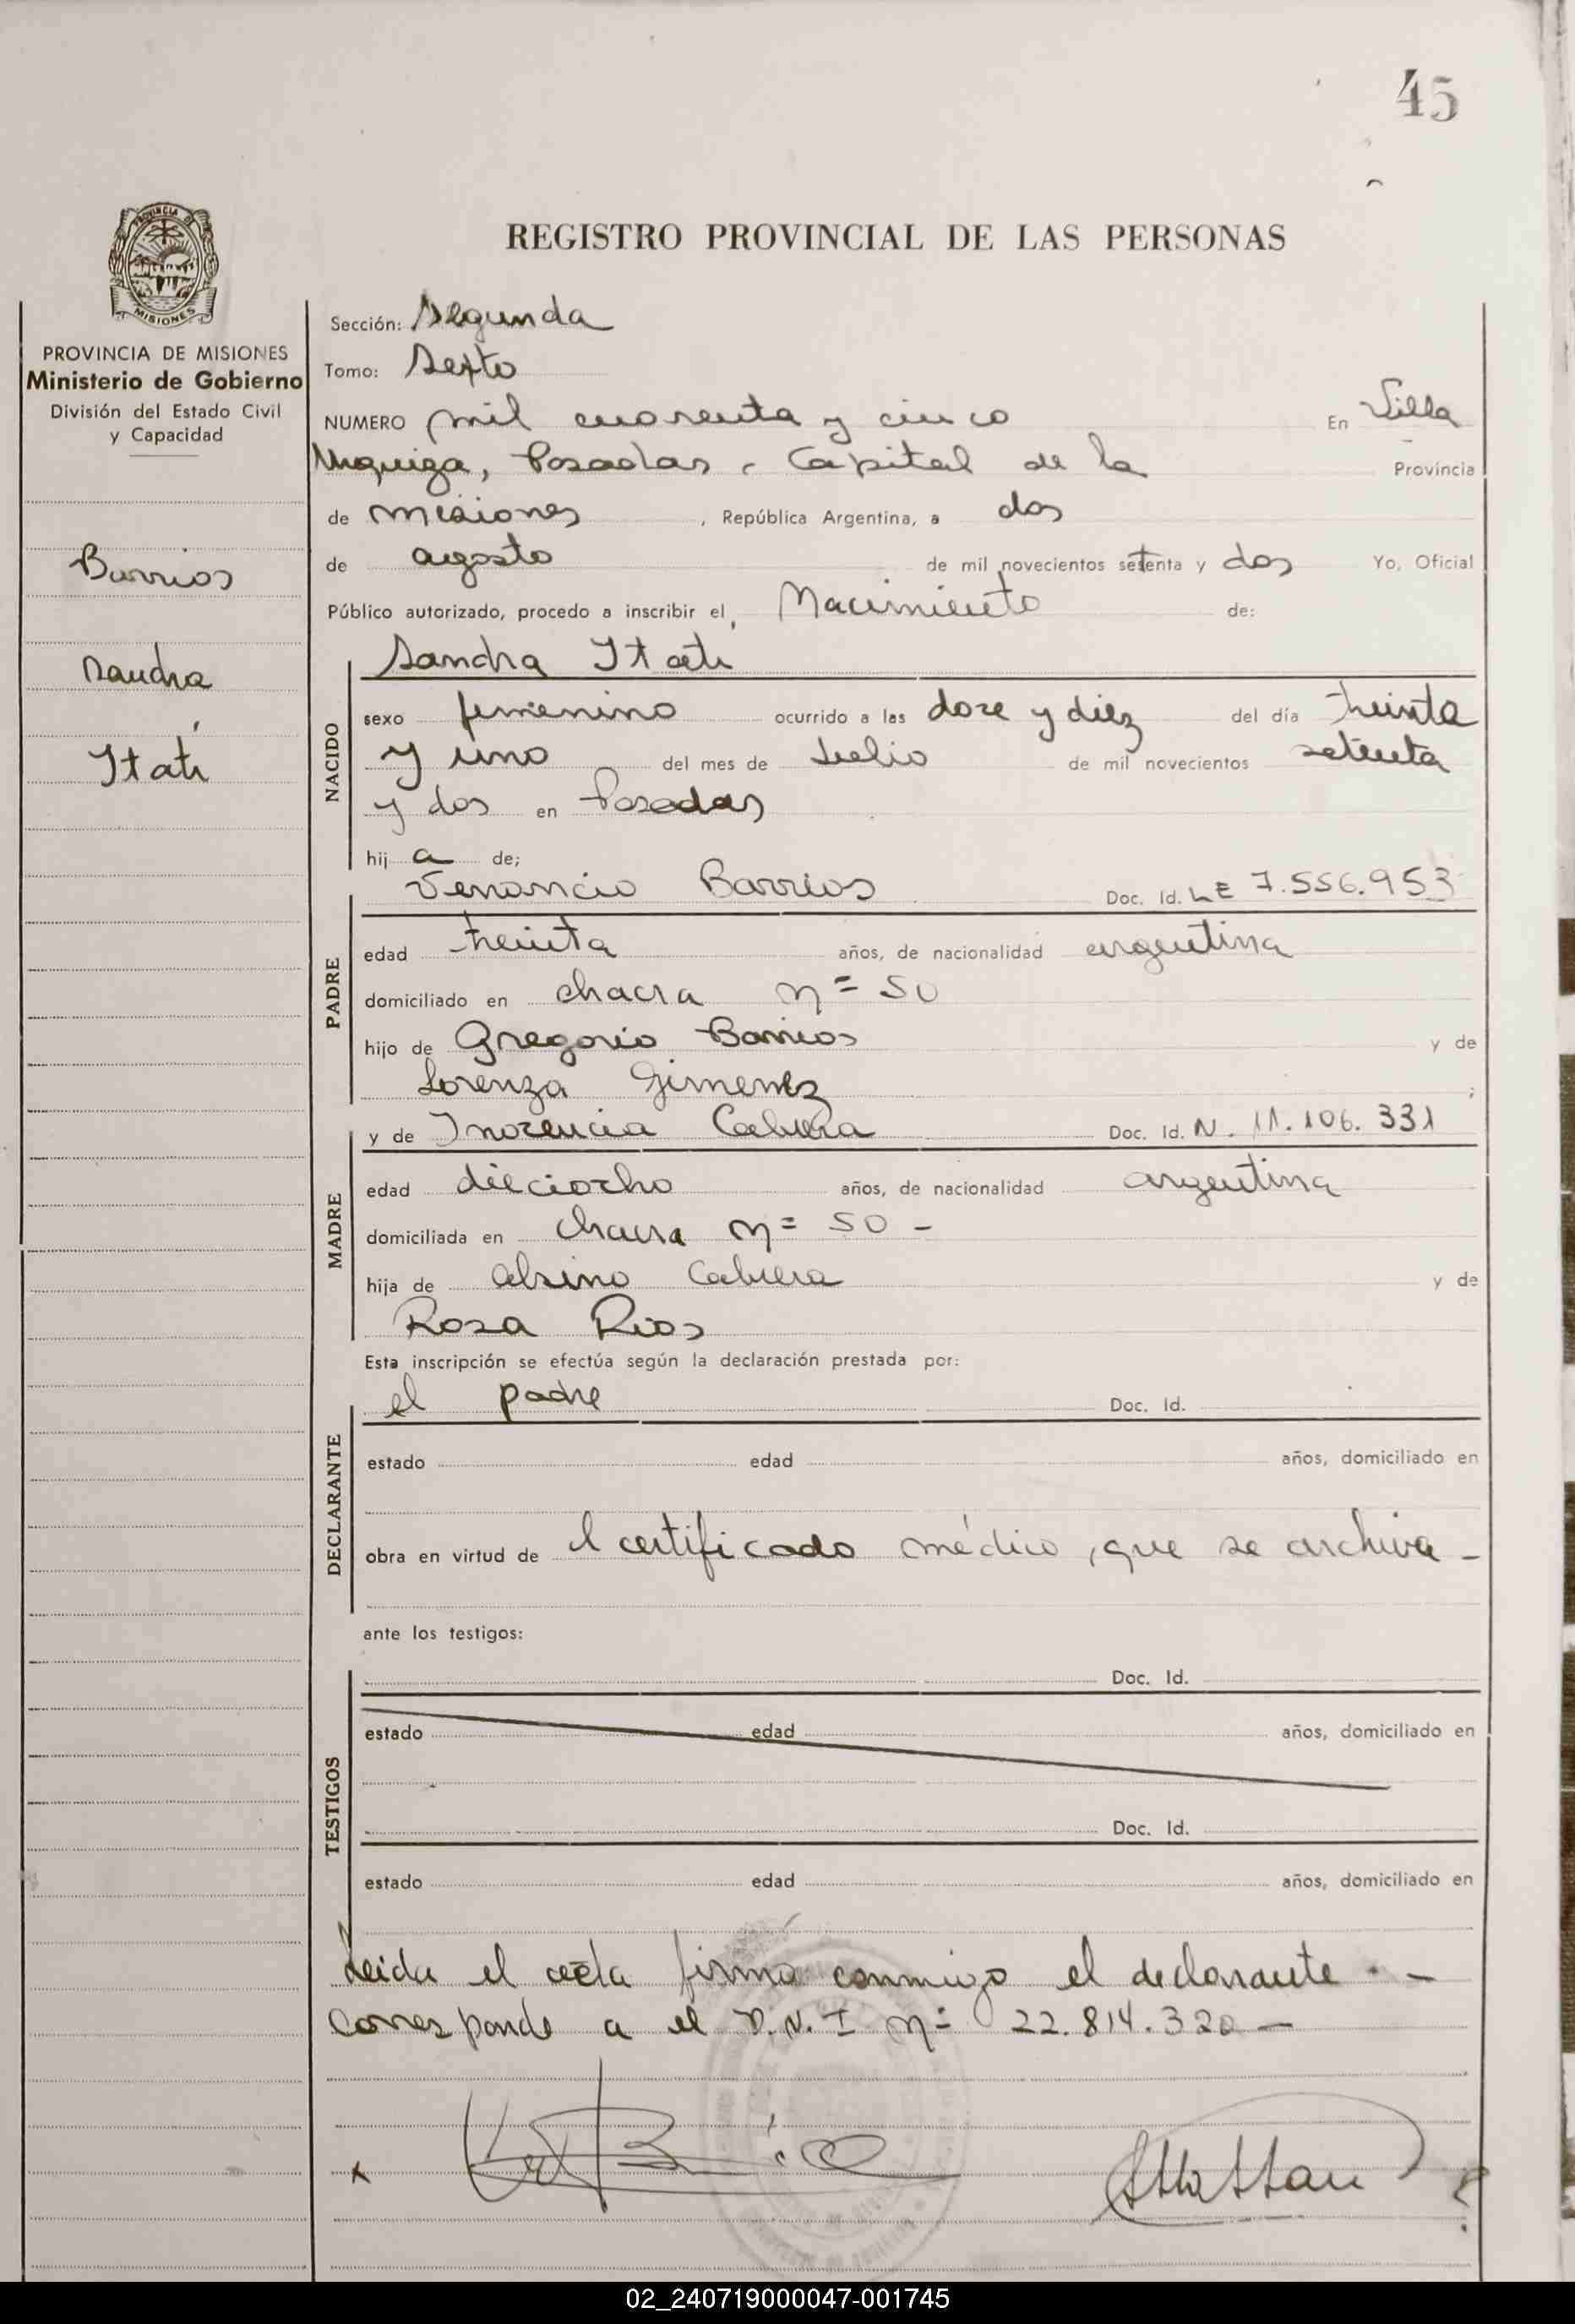 45
REGISTRO PROVINCIAL DE LAS PERSONAS
PROVINCIA DE MISIONES
Ministerio de Gobierno
División del Estado Civil
y Capacidad
Barrios
Sandra
Itatí
Sección: Segunda
Tomo: Sexto
NUMERO mil cuarenta y cinco En Villa
Urquiza, Posadas, Capital de la Provincia
de Misiones, República Argentina, a dos
de agosto de mil novecientos setenta y dos Yo, Oficial
Público autorizado, procedo a inscribir el Nacimiento de:
Sandra Itatí
NACIDO
sexo femenino ocurrido a las doce y diez del día treinta
y uno del mes de Julio de mil novecientos setenta
y dos en Posadas
hij a de;
Venancio Barrios Doc. Id. LE 7.556.953
PADRE
edad treinta años, de nacionalidad argentina
domiciliado en chacra nº 50
hijo de Gregorio Barrios y de
Lorenza Gimenez ;
y de Inocencia Cabrera Doc. Id. N. 11.106.331
MADRE
edad dieciocho años, de nacionalidad argentina
domiciliada en chacra nº 50 -
hija de Alsino Cabrera y de
Rosa Rios
Esta inscripción se efectúa según la declaración prestada por:
el padre Doc. Id.
DECLARANTE
estado edad años, domiciliado en
obra en virtud de l certificado médico, que se archiva -
ante los testigos:
Doc. Id.
TESTIGOS
estado edad años, domiciliado en
Doc. Id.
estado edad años, domiciliado en
Leida el acta firma conmigo el declarante. -
Corresponde a el D.N.I nº 22.814.320 -
02_240719000047-001745